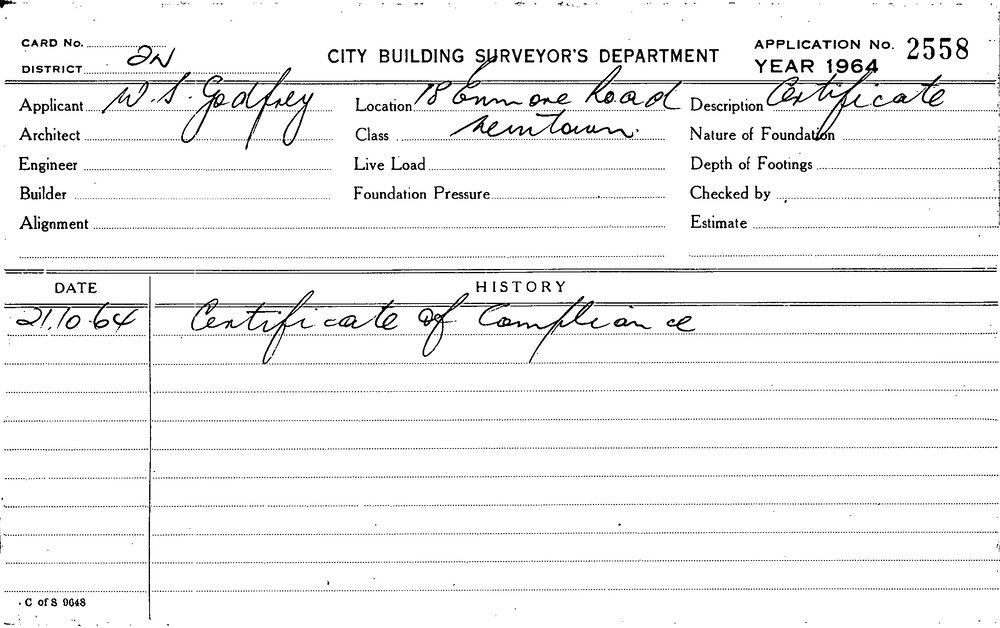 CARD No.
DISTRICT 2N
CITY BUILDING SURVEYOR'S DEPARTMENT
APPLICATION No. 2558
YEAR 1964
Applicant W. S. Godfrey
Location 18 Enmore Road
Description Certificate
Architect
Class Newtown.
Nature of Foundation
Engineer
Live Load
Depth of Footings
Builder
Foundation Pressure
Checked by
Alignment
Estimate
DATE
HISTORY
21.10.64 Certificate of Compliance
C of S 9648